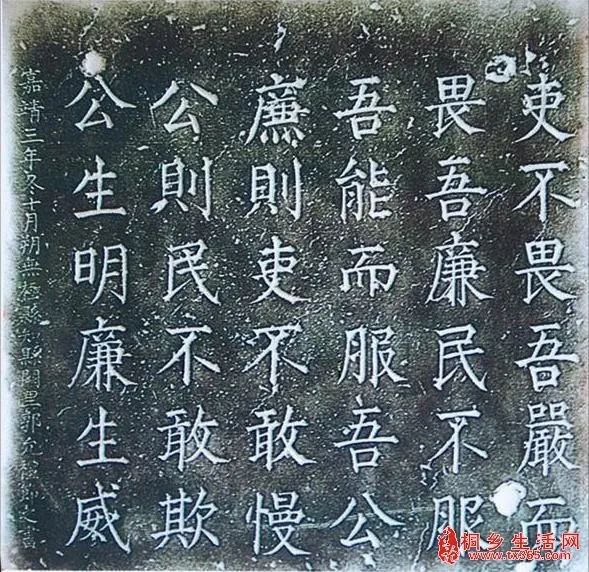 吏不畏吾嚴而
畏吾廉民不服
吾能而服吾公
廉則吏不敢慢
公則民不敢欺
公生明廉生威
嘉靖三年冬十月朔無極 闕里郭允
桐乡生活网
www.tx365.com